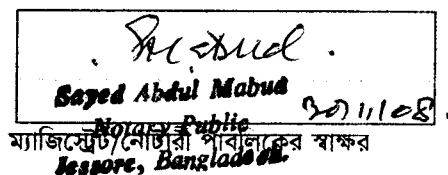 SMabud.
Sayed Abdul Mabud
30/11/08.
Notary Public
ম্যাজিস্ট্রেট/নোটারী পাবলিকের স্বাক্ষর
Jessore, Bangladesh.